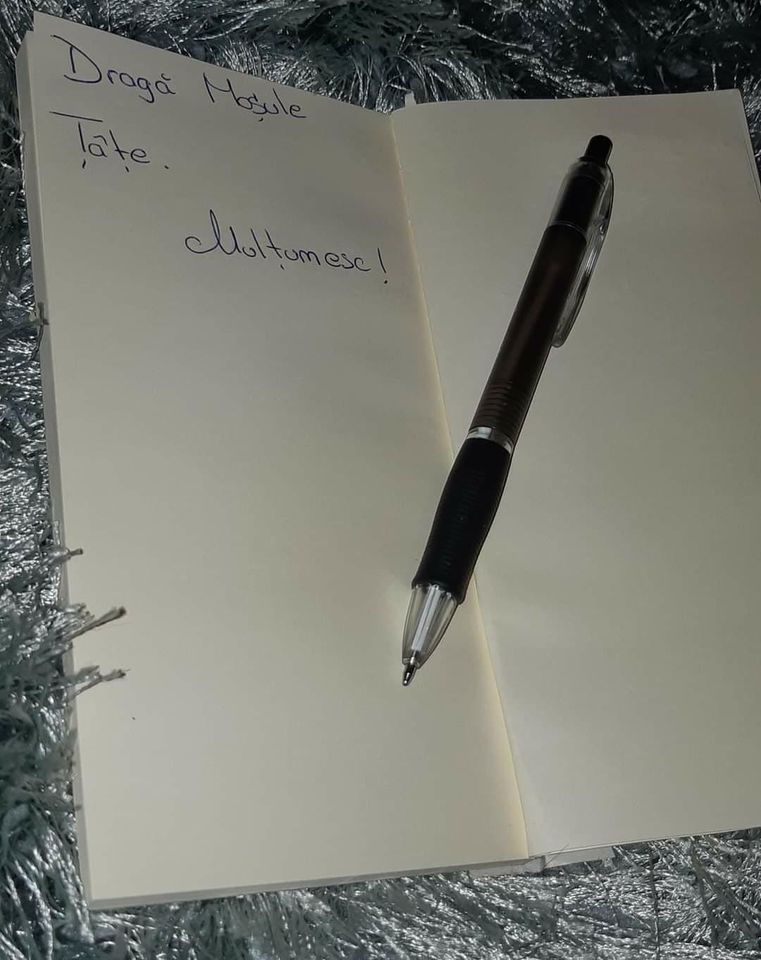 Dragă Moșule
Țâțe.
Mulțumesc!